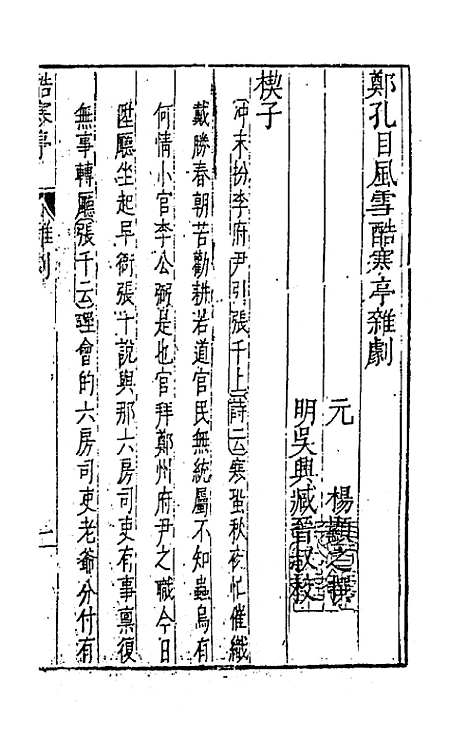 鄭孔目風雪酷寒亭雜劇
元 楊顯之撰
明吳興臧晉叔校
楔子
沖末扮李府尹引張千上詩云寒蛩秋夜忙催織
戴勝春朝苦勸耕若道官民無統屬不知蟲鳥有
何情小官李公弼是也官拜鄭州府尹之職今日
陞廳坐起早衙張千說與那六房司吏有事禀復
無事轉廳張千云理會的六房司吏老爺分付有
酷寒亭 雜劇 一